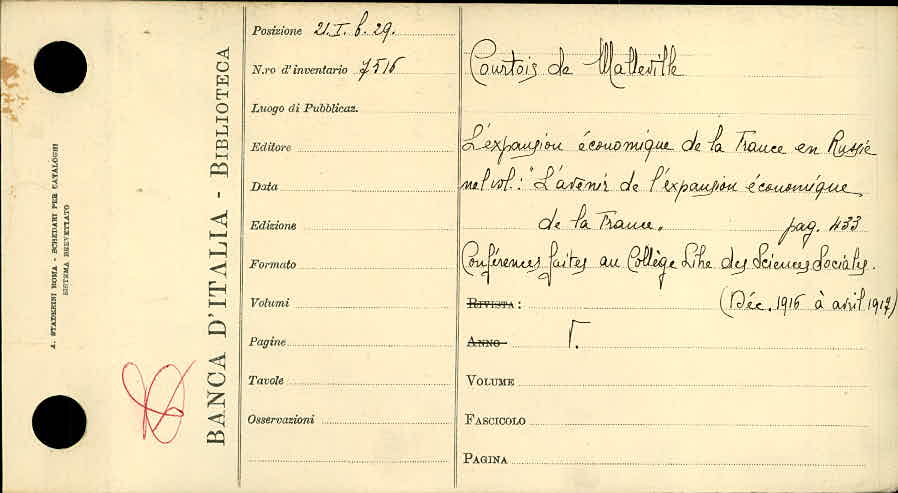 A. STADERINI ROMA - SCHEDARI PER CATALOGHI
SISTEMA BREVETTATO
BANCA D'ITALIA - BIBLIOTECA
Posizione 21. I. b. 29.
N.ro d'inventario 7516
Luogo di Pubblicaz.
Editore
Data
Edizione
Formato
Volumi
Pagine
Tavole
Osservazioni
Courtois de Malleville
L'expansion économique de la France en Russie
nel vol.: "L'avenir de l'expansion économique
de la France. pag. 433
Conférences faites au Collège Libre des Sciences Sociales.
RIVISTA: (Déc. 1916 à avril 1917)
ANNO
VOLUME
FASCICOLO
PAGINA